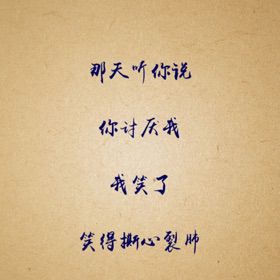 那天听你说
你讨厌我
我笑了
笑得撕心裂肺